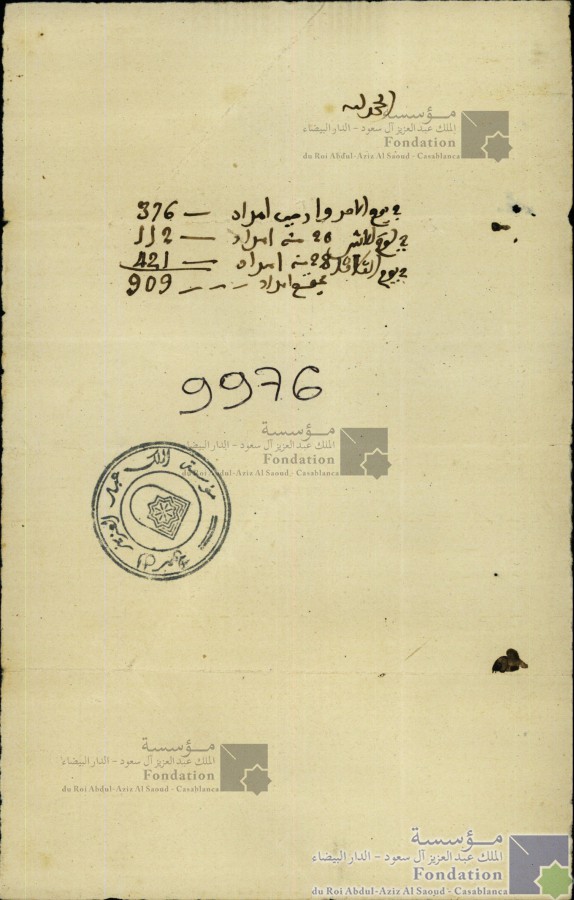 الحمد لله
مؤسسة
الملك عبد العزيز آل سعود - الدار البيضاء
Fondation
du Roi Abdul-Aziz Al Saoud - Casablanca
امداد — 376
26 منه امداد — 112
28 منه امداد — 421
امداد - - - 909
9976
مؤسسة
الملك عبد العزيز آل سعود - الدار البيضاء
Fondation
du Roi Abdul-Aziz Al Saoud - Casablanca
مؤسسة الملك عبد العزيز
مؤسسة
الملك عبد العزيز آل سعود - الدار البيضاء
Fondation
du Roi Abdul-Aziz Al Saoud - Casablanca
مؤسسة
الملك عبد العزيز آل سعود - الدار البيضاء
Fondation
du Roi Abdul-Aziz Al Saoud - Casablanca